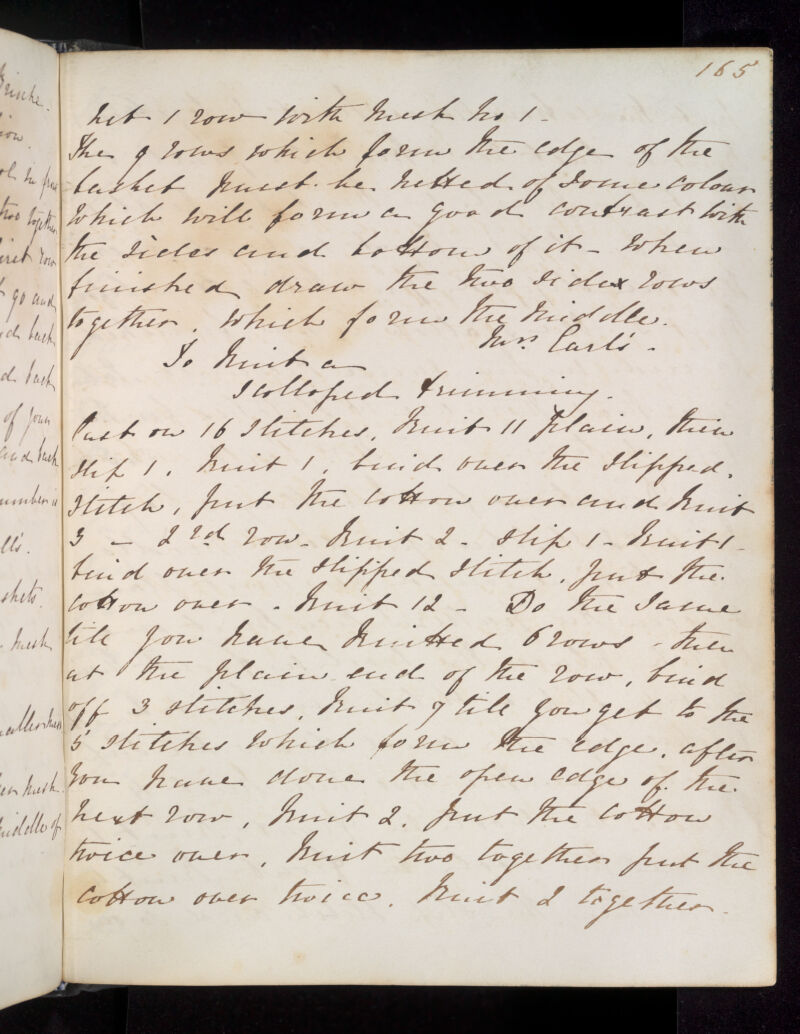 165
net 1 row with mesh no 1 -
The 9 rows which form the edge of the
basket must be netted of some colour
which will form a good contrast with
the sides and bottom of it - when
finished draw the two side rows
together, which form the middle.
Mrs Earl's -
To Knit a
Scolloped trimming.
Cast on 16 stitches, Knit 11 plain, then
slip 1, Knit 1, bind over the slipped
stitch, put the cotton over and Knit
3 - 2nd row - Knit 2 - slip 1 - Knit 1 -
bind over the slipped stitch, put the
cotton over - Knit 12 - Do the same
till you have Knitted 6 rows - then
at the plain end of the row, bind
off 3 stitches, Knit 7 till you get to the
5 stitches which form the edge, after
you have done the open edge of the
next row, Knit 2, put the cotton
twice over, Knit two together put the
cotton over twice, Knit 2 together -
ion.
two together
first row
go and
back
back
of your
and back
number is
mesh
mesh
middle of